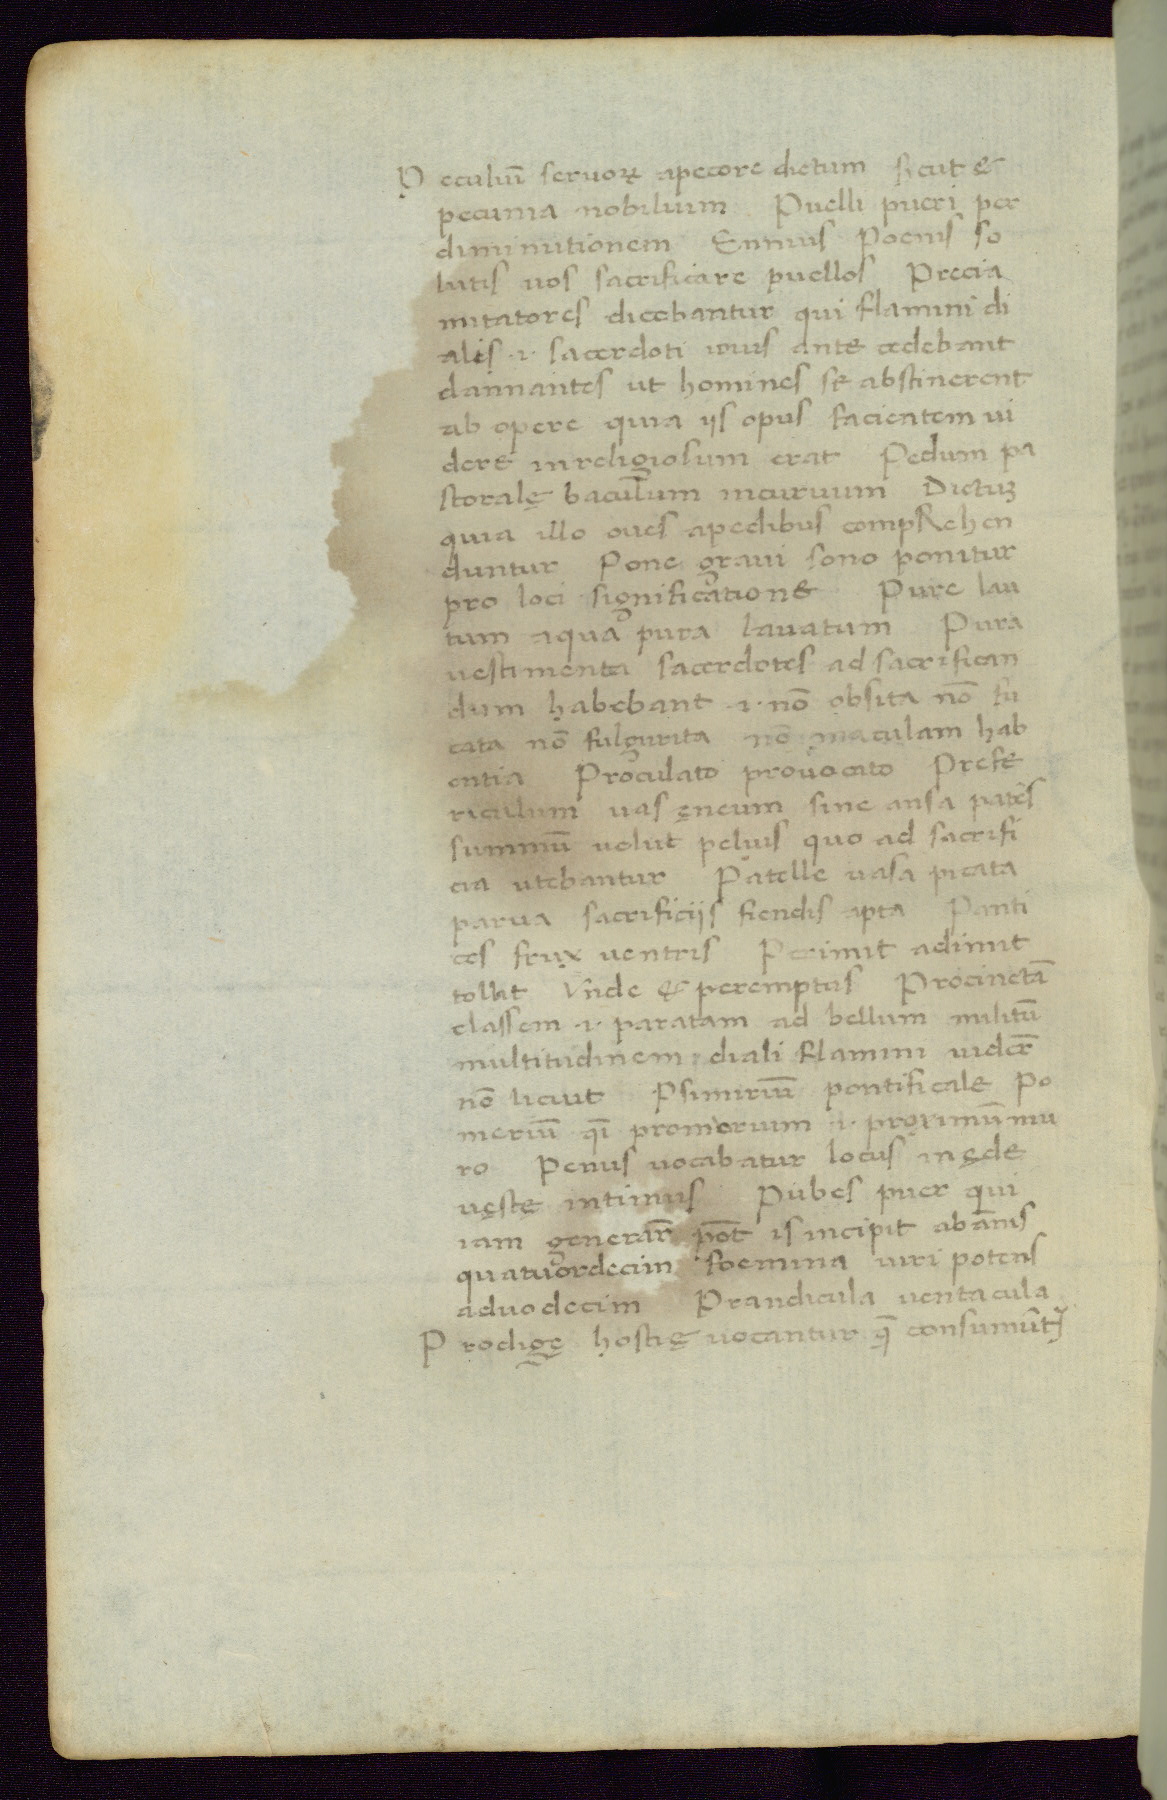 Peculiū seruoꝝ apecore dictum sicut &
pecunia nobiluim Puelli pueri per
diminutionem Ennius Poenis so
litis uos sacrificare puellos Precia
mitatores dicebantur qui flamini di
alis .i. sacerdoti iouis ante cedebant
clamantes ut homines se abstinerent
ab opere quia iis opus facientem ui
dere inreligiosum erat Pedum pa
storalę baculum incuruum Dictuꝫ
quia illo oues apedibus compRehen
duntur Pone graui sono ponitur
pro loci significatione Pure lau
tum aqua pura lauatum Pura
uestimenta sacerdotes ad sacrifican
dum habebant .i. nō obsita nō fu
cata nō fulgurita nō maculam hab
entia Proculato prouocato Prefe
riculum uas ęneum sine ansa patēs
summū uelut peluis quo ad sacrifi
cia utebantur Patelle uasa picata
parua sacrificiis fiendis apta Panti
ces frux uentris Perimit adimit
tollit Vnde & peremptus Procinctā
classem .i. paratam ad bellum militū
multitudinem diali flamini uider̄
nō licuit Psimiriū pontificale Po
meriū q̄i promorium .i. proximū mu
ro Penus uocabatur locus inęde
uęstę intimus Pubes puer qui
iam generar̄ pōt is incipit abānis
quatuordecim foemina uiri potens
aduodecim Prandicula uentacula
Prodigę hostię uocantur q̄ consumūt̄